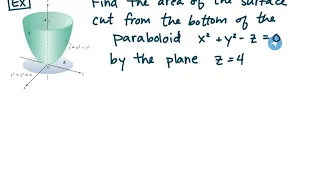 Ex
Find the area of the surface
cut from the bottom of the
paraboloid x² + y² - z = 0
by the plane z = 4
z
z = x² + y²
R
x² + y² = 4
x
y